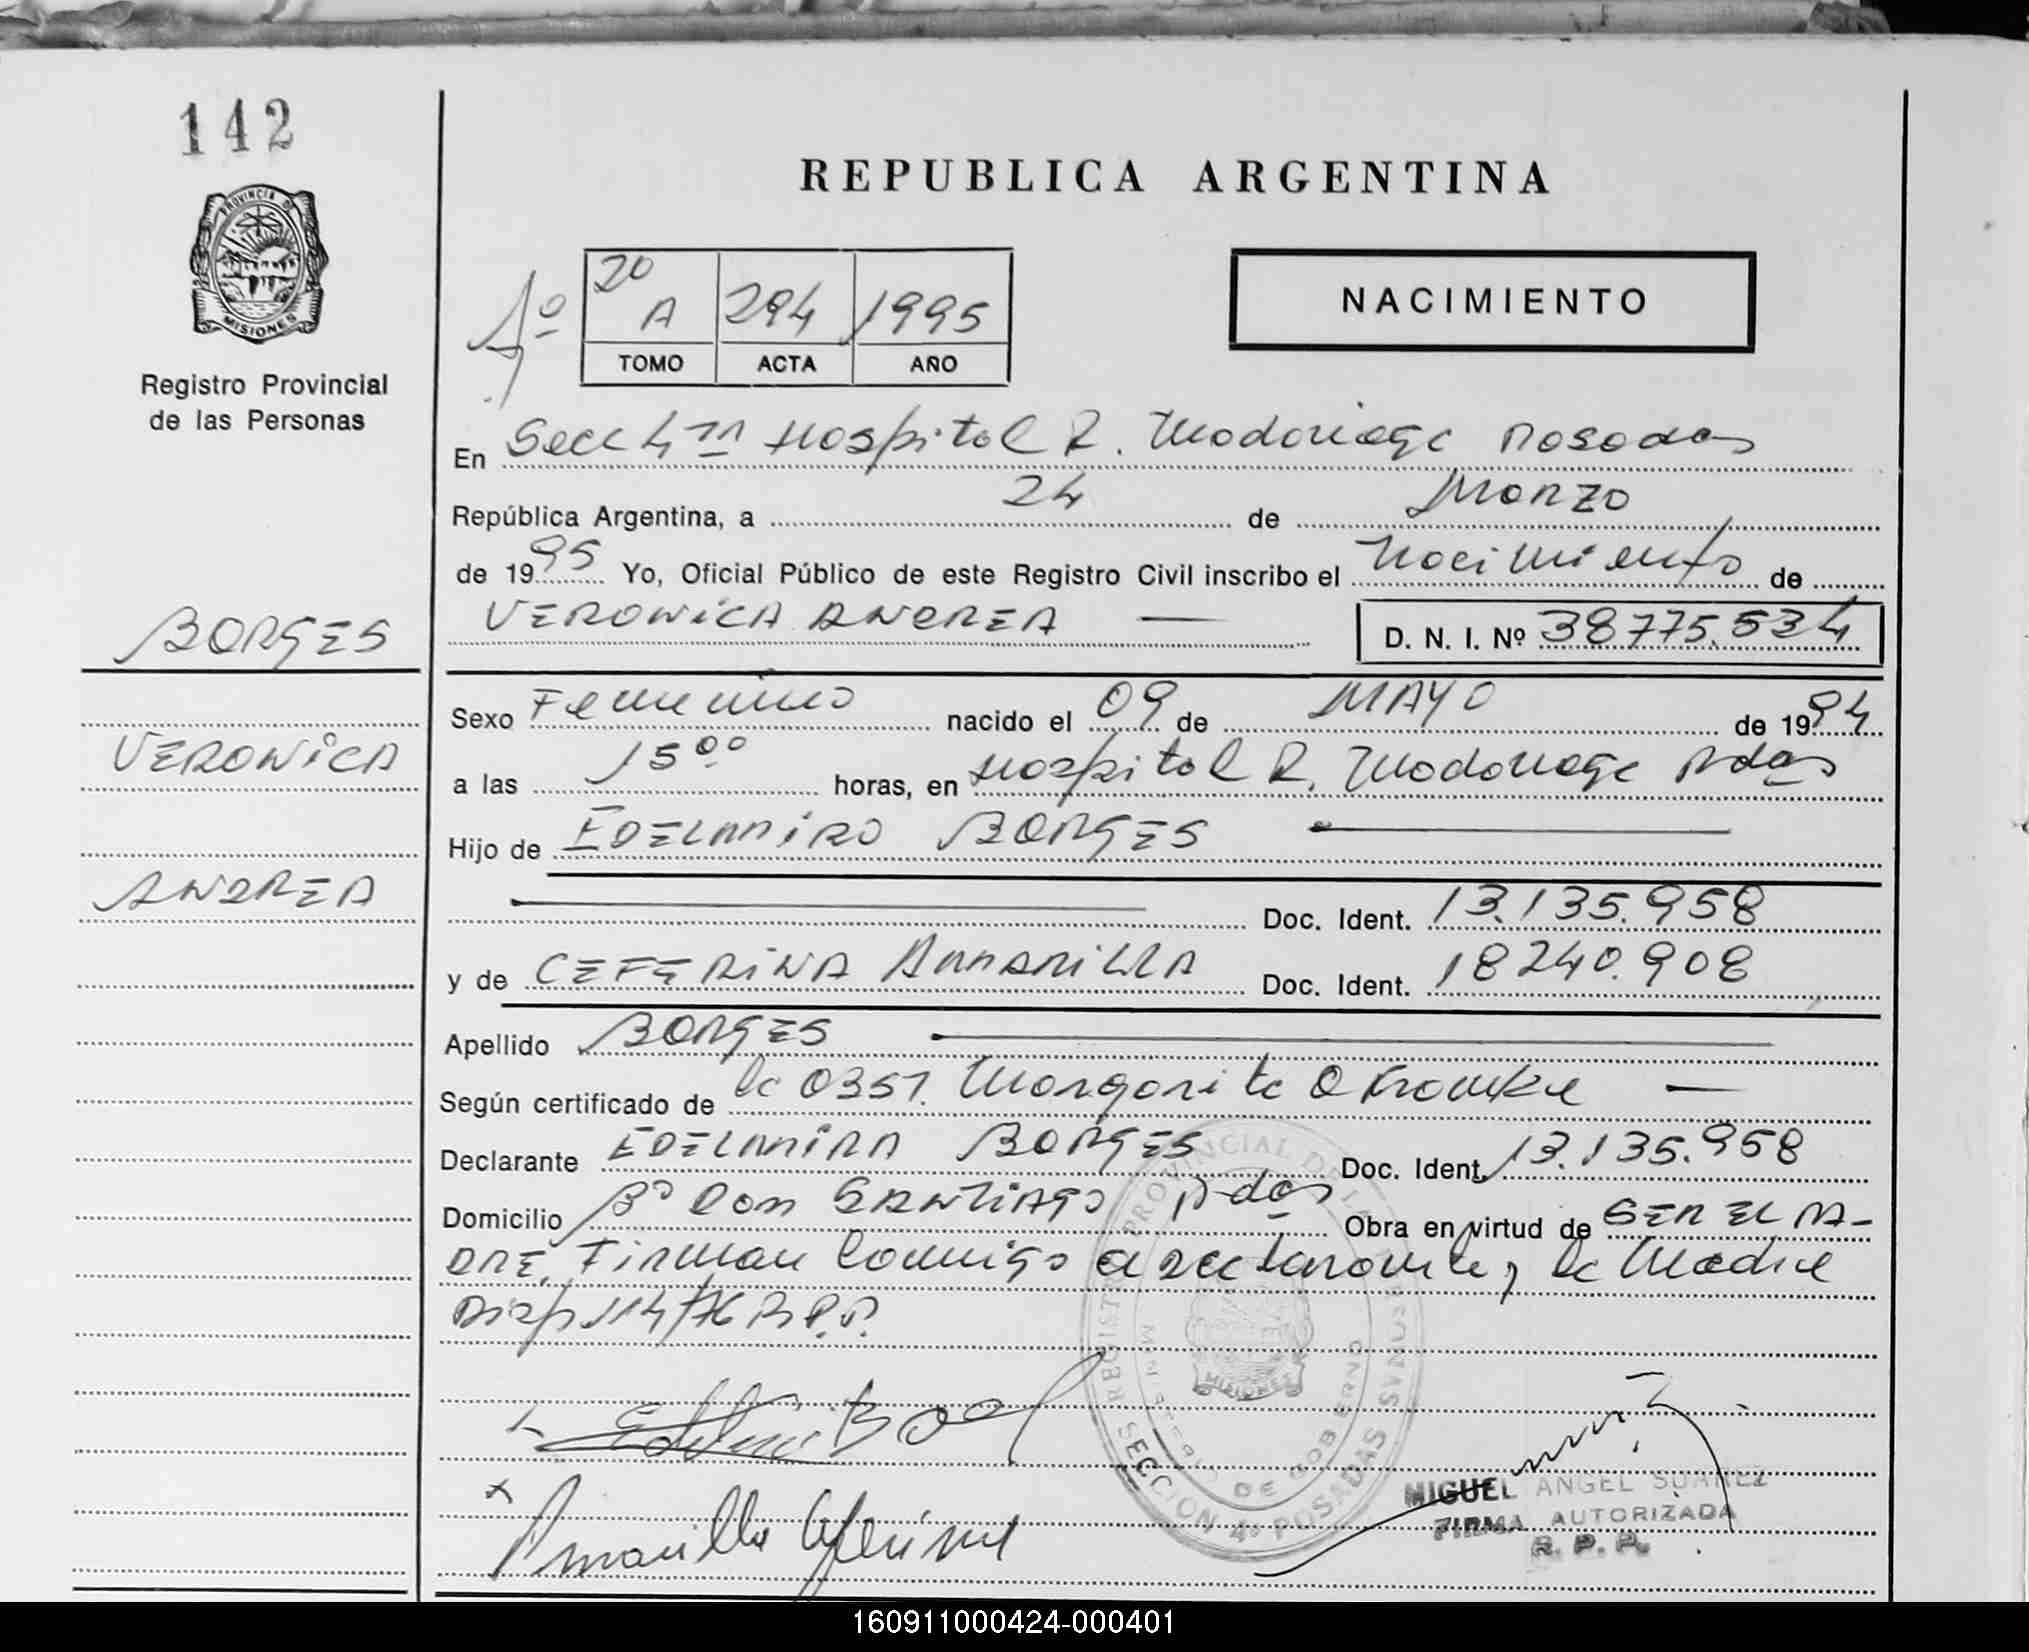 142
REPUBLICA ARGENTINA
PROVINCIA D
MISIONES
Registro Provincial
de las Personas
2º A 294 1995
TOMO ACTA AÑO
NACIMIENTO
En Secc 4ta Hospital R. Madariaga Posadas
República Argentina, a 24 de Marzo
de 1995 Yo, Oficial Público de este Registro Civil inscribo el Nacimiento de
VERONICA ANDREA — D. N. I. Nº 38775.534
BORGES
VERONICA
ANDREA
Sexo Femenino nacido el 09 de MAYO de 1994
a las 15.00 horas, en Hospital R. Madariaga Pdas
Hijo de EDELMIRO BORGES
Doc. Ident. 13.135.958
y de CEFERINA AMARILLA Doc. Ident. 18240.908
Apellido BORGES
Según certificado de la Obst. Margarita —
Declarante EDELMIRO BORGES Doc. Ident. 13.135.958
Domicilio Bº Don SANTIAGO Pdas Obra en virtud de SER EL PA-
DRE. Firman Conmigo el declarante y la Madre
Disp 114/76 R.P.P.
REGISTRO PROVINCIAL DE LAS PERSONAS
MINISTERIO DE GOBIERNO
MISIONES
SECCION 4º POSADAS
Amarilla Ceferina
MIGUEL ANGEL SUAREZ
FIRMA AUTORIZADA
R. P. P.
160911000424-000401